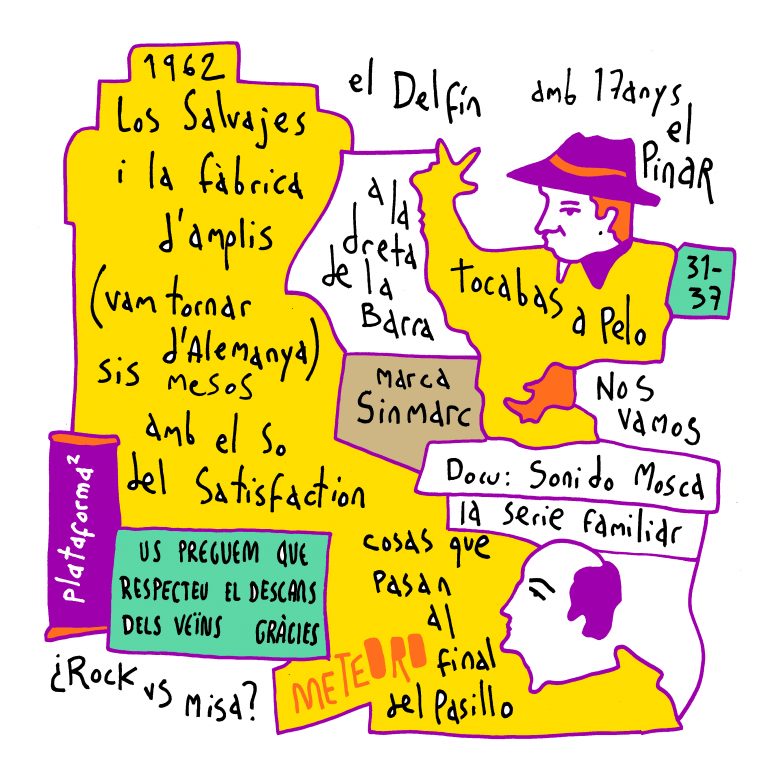 1962
Los Salvajes
i la fàbrica
d'amplis
(vam tornar
d'Alemanya)
sis mesos
amb el so
del Satisfaction
el Delfín
amb 17anys
el
PinaR
a la
dreta
de la
Barra
tocabas a Pelo
31-
37
marca
Sinmarc
Nos
vamos
Docu: Sonido Mosca
la serie familiar
plataforma²
US PREGUEM QUE
RESPECTEU EL DESCANS
DELS VEÏNS GRÀCIES
cosas que
pasan
al
final
del Pasillo
METEORO
¿Rock vs misa?